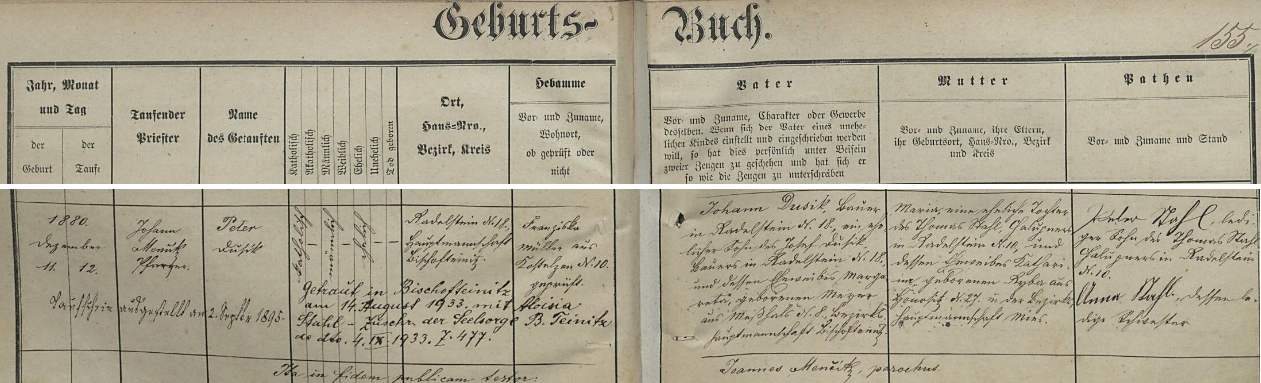 Geburts-Buch.
155.
Jahr, Monat
und Tag
der
Geburt
der
Taufe
Taufender
Priester
Name
des Getauften
Katholisch
Akatholisch
Männlich
Weiblich
Ehelich
Unehelich
Tod geboren
Ort,
Haus-Nro.,
Bezirk, Kreis
Hebamme
Vor- und Zuname,
Wohnort,
ob geprüft oder
nicht
Vater
Vor- und Zuname, Charakter oder Gewerbe
desselben. Wenn sich der Vater eines unehe-
licher Kindes einstellt und eingeschrieben werden
will, so hat dies persönlich unter Beisein
zweier Zeugen zu geschehen und hat sich er
so wie die Zeugen zu unterschräben
Mutter
Vor- und Zuname, ihre Eltern,
ihr Geburtsort, Haus-Nro., Bezirk
und Kreis
Pathen
Vor- und Zuname und Stand
1880.
Dezember
11. 12.
Johann
Menčik
Pfarrer.
Peter
Dusik
katholisch
männlich
ehelich
Radelstein N. 18,
Hauptmannschaft
Bischofteinitz.
Franziska
Müller aus
N. 10.
geprüft.
Taufschein ausgestellt am 2. Septbr 1895.
Getraut in Bischofteinitz
am 14. August 1933. mit Aloisia
Stahl - Zuschr. der Seelsorge B. Teinitz
de dto. 4. IX. 1933. Z. 477.
Johann Dusik, Bauer
in Radelstein N. 18, ein ehe-
licher Sohn des Josef Dusik,
Bauers in Radelstein N. 18.
und dessen Eheweibes Marga-
reta, geborenen Meyer
aus N. 8. Bezirks-
hauptmannschaft Bischofteinitz.
Maria, eine eheliche Tochter
des Thomas Stahl, Chalupners
in Radelstein N. 10, und
dessen Eheweibes Kathari-
na, geborenen Ryba aus
N. 27. in der Bezirks-
hauptmannschaft Mies.
Peter Stahl, ledi-
ger Sohn des Thomas Stahl
Chalupners in Radelstein
N. 10.
Anna Stahl, dessen le-
dige Schwester
Ita in fidem publicam testor:
Joannes Menčik, parochus.